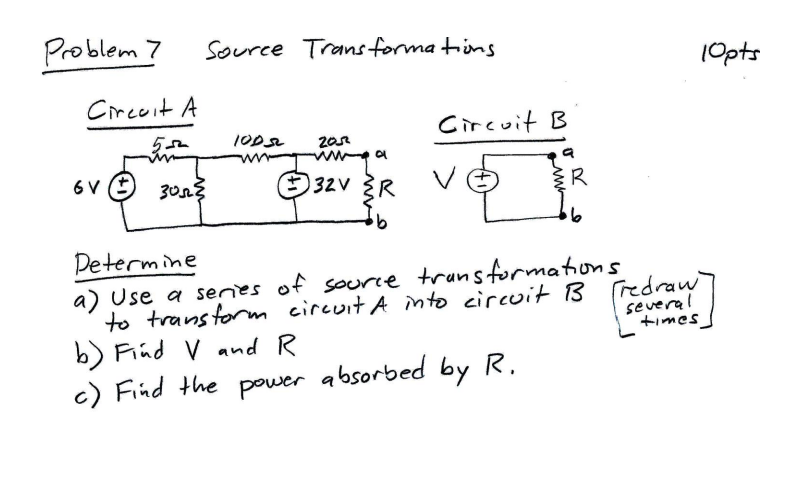 Problem 7 Source Transformations 10pts
Circuit A
Circuit B
5Ω 100Ω 20Ω a
6V + − 30Ω + − 32V R
b
a
V + − R
b
Determine
a) Use a series of source transformations
to transform circuit A into circuit B
[redraw several times]
b) Find V and R
c) Find the power absorbed by R.